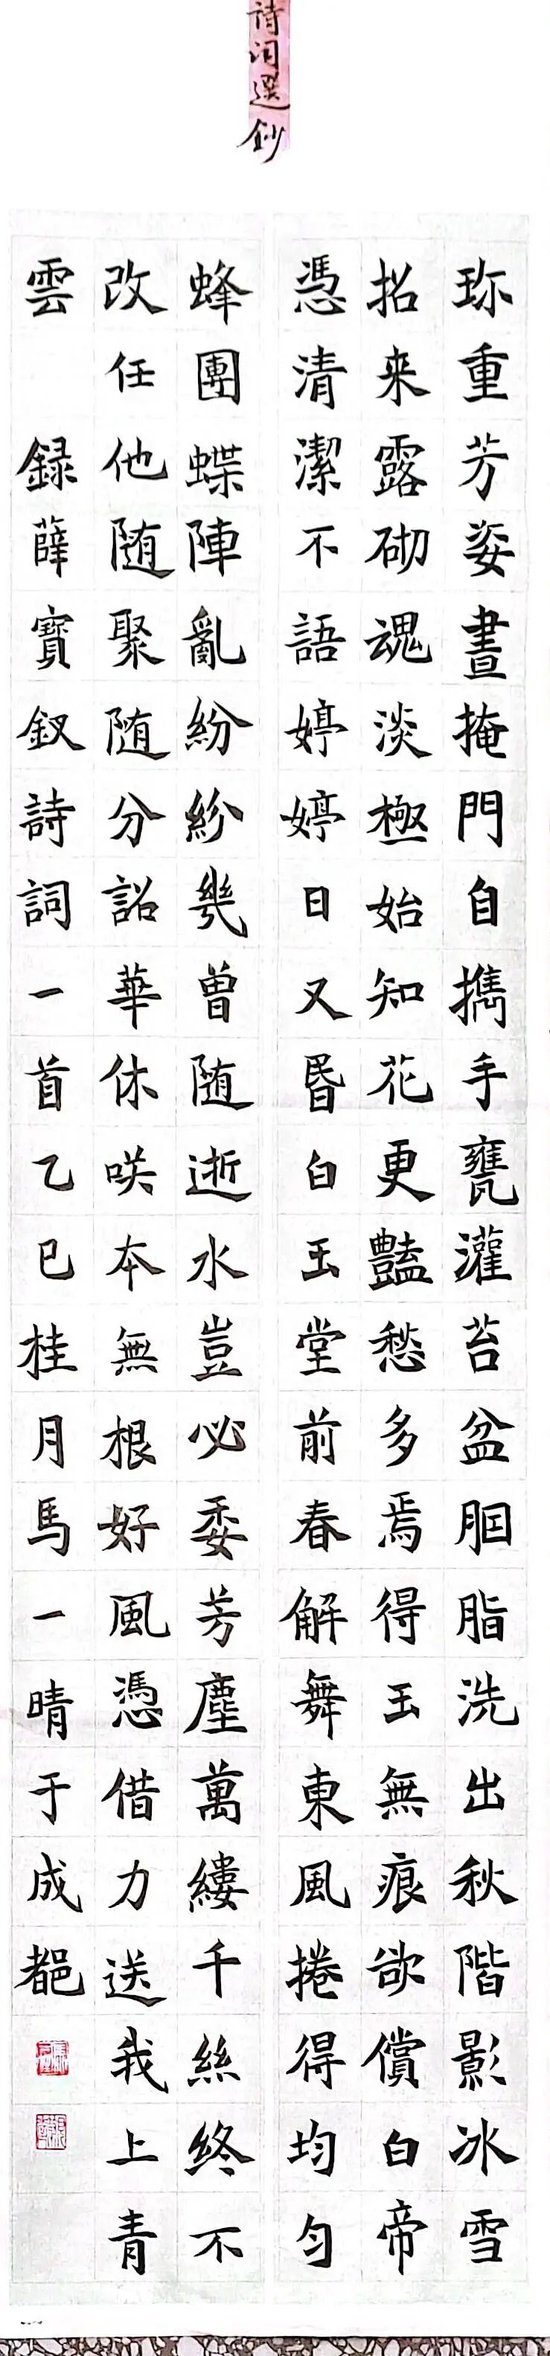 詩词選鈔
珎重芳姿晝掩門自攜手甕灌苔盆胭脂洗出秋階影冰雪
招来露砌魂淡極始知花更豔愁多焉得玉無痕欲償白帝
憑清潔不語婷婷日又昬白玉堂前春解舞東風捲得均勻
蜂團蝶陣亂紛紛幾曾随逝水豈必委芳塵萬縷千絲終不
改任他随聚随分詔華休咲本無根好風憑借力送我上青
雲 録薛寶釵詩詞一首乙巳桂月馬一晴于成都